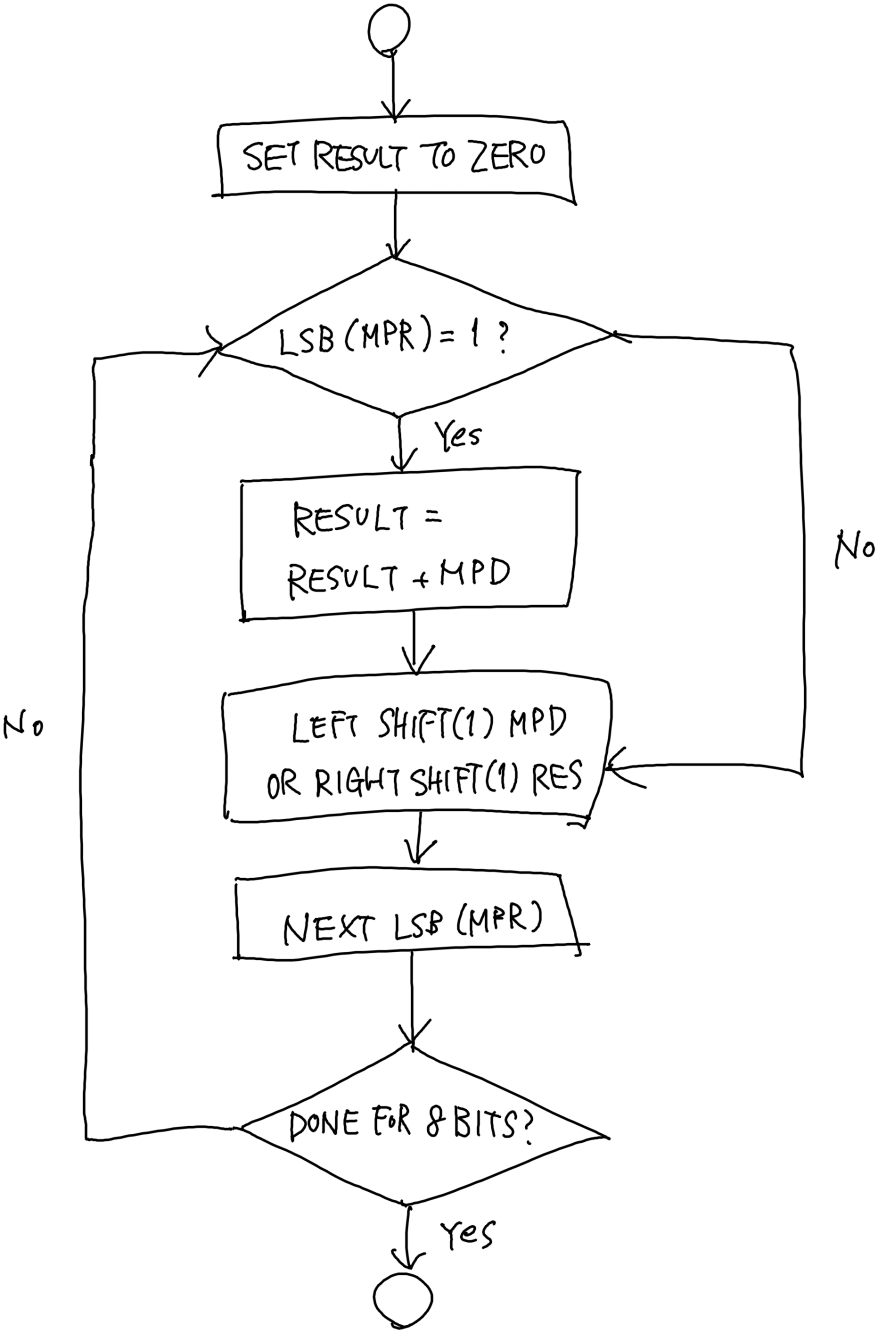 SET RESULT TO ZERO
LSB (MPR) = 1 ?
Yes
RESULT =
RESULT + MPD
No
LEFT SHIFT(1) MPD
OR RIGHT SHIFT(1) RES
No
NEXT LSB (MPR)
DONE FOR 8 BITS?
Yes